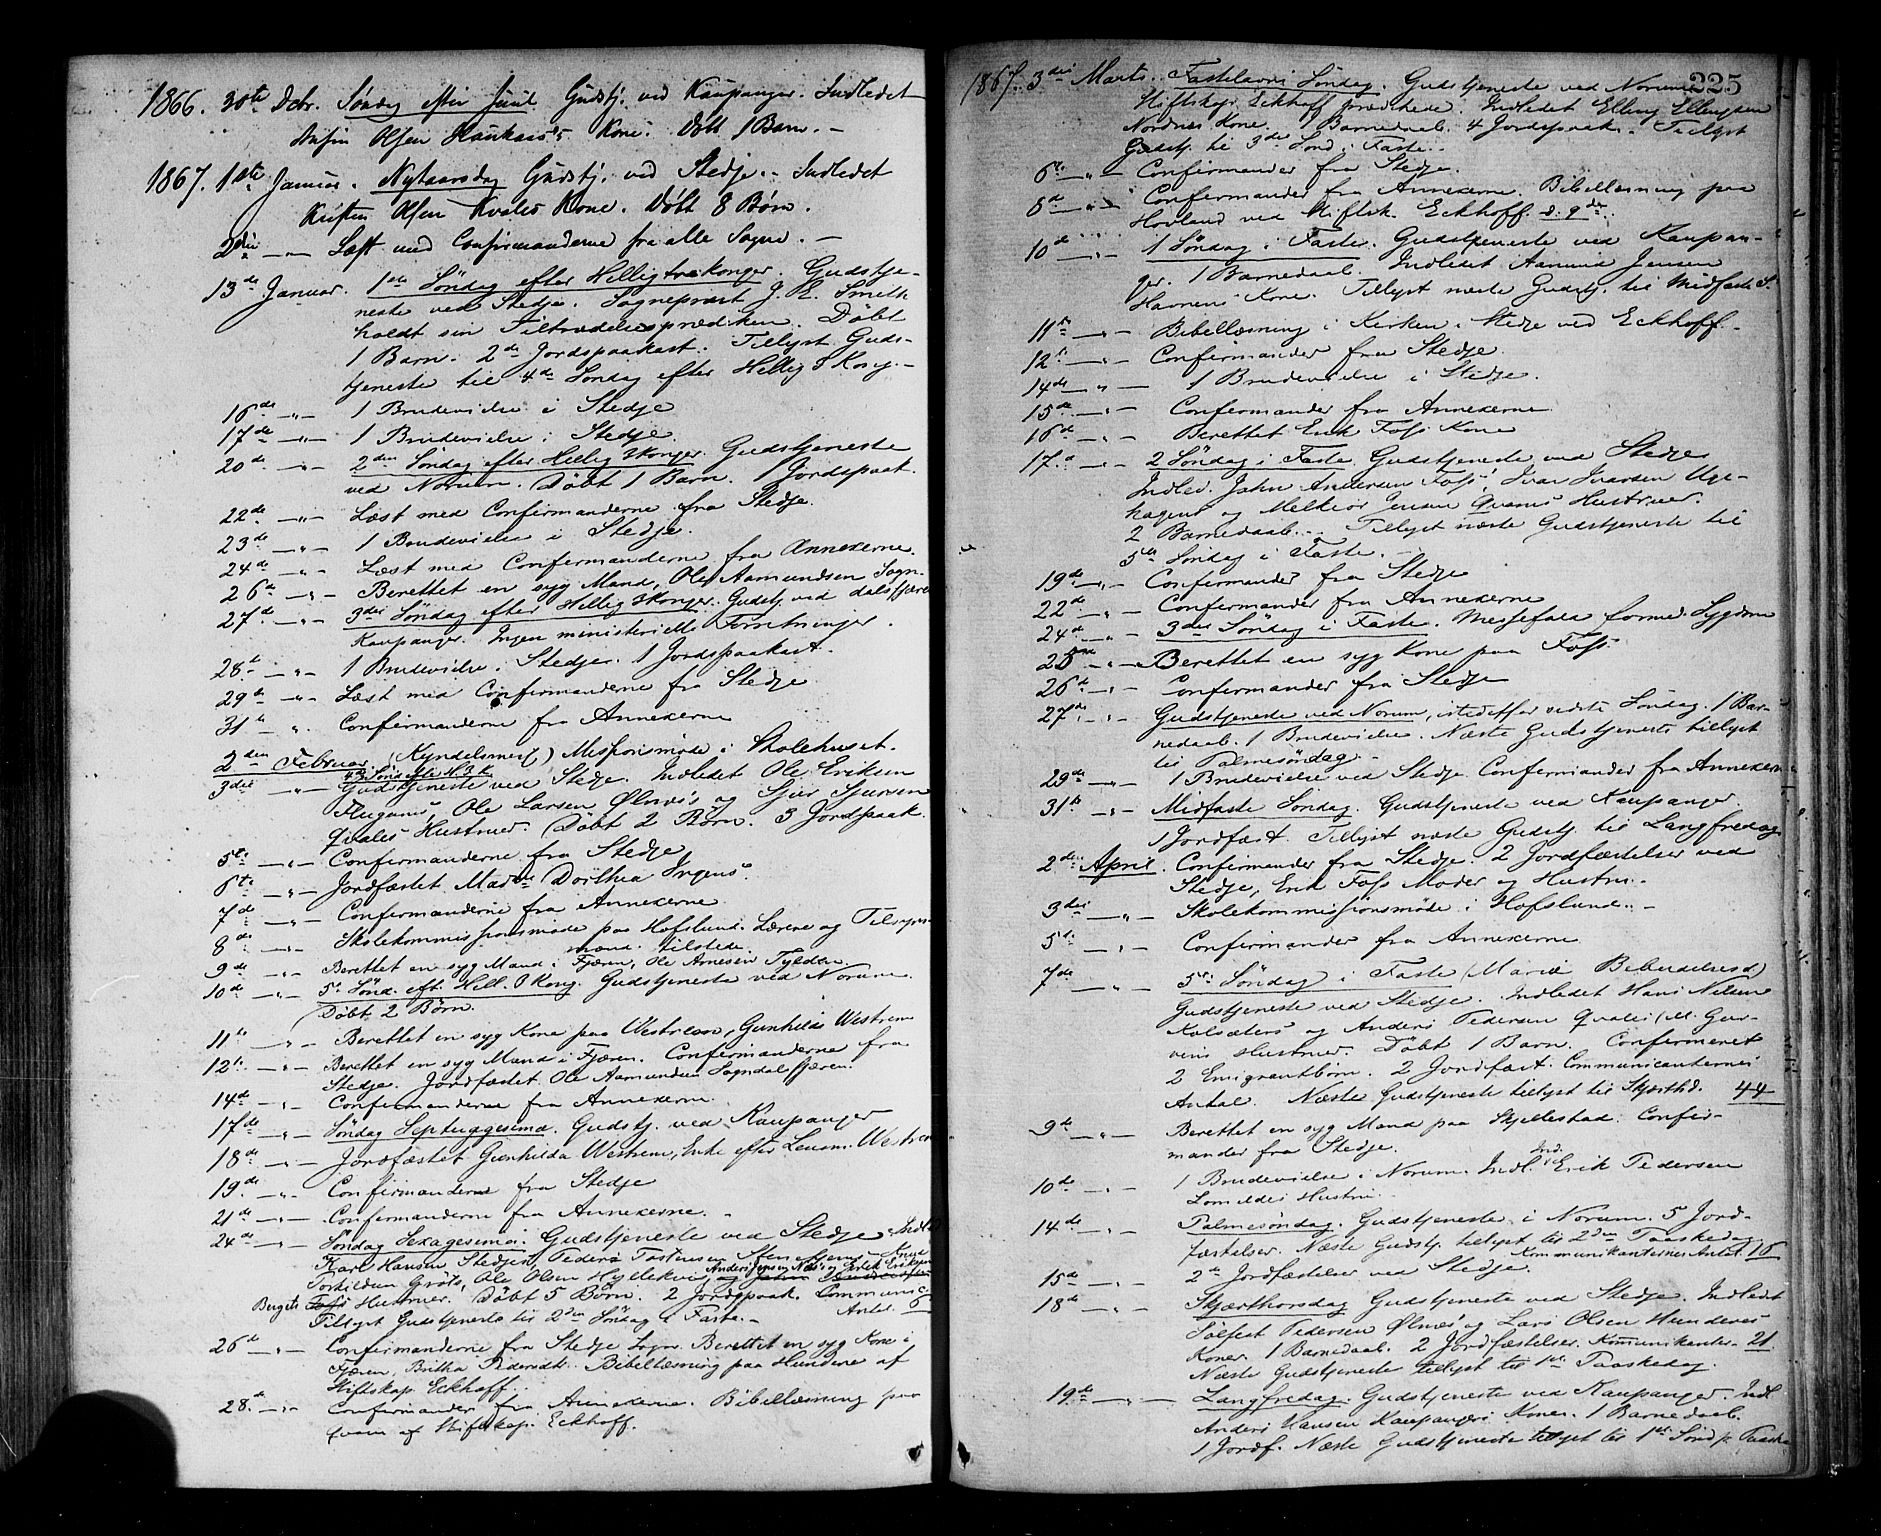 1866. 30te Dcbr. Søndag efter Juul Gudstj. ved Kaupanger. Indledet
Olsen Kone. Døbt 1 Barn. –
1867. 1ste Januar. Nytaarsdag Gudstj. ved Stedje. – Indledet
Kristen Olsen Kvales Kone. Døbt 8 Børn.
2den – " – Læst med Confirmanderne fra alle Sogne. –
13de Januar. 1ste Søndag efter Helligtrekonger. Gudstje-
neste ved Stedje. Sognepræst J. Smith
holdt sin Tiltrædelsesprædiken. Døbt
1 Barn. 2de Jordspaakast. Tillyst Guds-
tjeneste til 4de Søndag efter Hellig 3 Kong. –
16de – " – 1 Brudevielse i Stedje
17de – " – 1 Brudevielse i Stedje.
20de – " – 2den Søndag efter Hellig 3konger. Gudstjeneste
ved Norum. Døbt 1 Barn. 1 Jordspaak.
22de – " – Læst med Confirmanderne fra Stedje.
23de – " – 1 Brudevielse i Stedje.
24de – " – Læst med Confirmanderne fra Annexerne.
26de – " – Berettet en syg Mand, Ole Aamundsen Sogn-
27de – " – 3die Søndag efter Hellig 3konger. Gudstj. ved dalsfjæren
Kaupanger. Ingen ministerielle Forretninger.
28de – " – 1 Brudevielse. Stedje. 1 Jordspaakast.
29de – " – Læst med Confirmanderne fra Stedje
31te – " – Confirmanderne fra Annexerne
2den Februar. (Kyndelsmess) Missionsmøde i Skolehuset.
4de Sønd efter H.3.K.
3die – " – Gudstjeneste ved Stedje. Indledet Ole Eriksen
Flugums, Ole Larsen Ølnæs og Sjur Sjursen
Qvales Hustruer. Døbt 2 Børn. 3 Jordspaak.
5te – " – Confirmanderne fra Stedje
6te – " – Jordfæstet Dorthea Ingens.
7de – " – Confirmanderne fra Annexerne
8de – " – Skolekommissionsmøde paa Hofslund. Lærerne og Tilsyns-
mænd tilstede.
9de – " – Berettet en syg Mand i Fjæren, Ole Arnesen Tylden.
10de – " – 5te Sønd. eft. Hell. 3 Kong. Gudstjeneste ved Norum.
Døbt 2 Børn.
11te – " – Berettet en syg Kone paa Westrem, Gunhilda Westrem
12te – " – Berettet en syg Mand i Fjæren. Confirmanderne fra
Stedje. Jordfæstet Ole Aamundsen Sogndalsfjæren.
14de – " – Confirmanderne fra Annexerne.
17de – " – Søndag Septuagesima. Gudstj. ved Kaupanger
18de – " – Jordfæstet Gunhilda Westrem, Enke efter Westrem
19de – " – Confirmanderne fra Stedje
21de – " – Confirmanderne fra Annexerne. –
24de – " – Søndag Sexagesima. Gudstjeneste ved Stedje. Indled.
Karl Hansen Stedjes, Peders Knud
Torkildsen Ole Olsen Anders Jensen Næs og Erik Eriksen
Bergets Hustruer. Døbt 5 Børn. 2 Jordspaak. Communic.
Antal. 6
Tillyst Gudstjeneste til 2den Søndag i Faste. –
26de – " – Confirmanderne fra Stedje Sogn. Berettet en syg Kone i
Fjæren, Britha Bibellæsning paa Hundere af
Stiftskap. Eckhoff.
28de – " – Confirmander fra Annexerne. Bibellæsning paa
Qvam af Stiftskap. Eckhoff.
225
1867. 3die Marts. Fastelavns Søndag. Gudstjeneste ved Norum.
Stiftskap. Eckhoff prædikede. Indledet Elling Ellingsen
Nordnes Kone. 1 Barnedaab. 4 Jordspaak. Tillyst
Gudstj. til 3die Sønd. i Faste. –
5te – " – Confirmander fra Stedje.
8de – " – Confirmander fra Annexerne. Bibellæsning paa
Hovland ved Stiftsk. Eckhoff. d. 9de.
10de – " – 1 Søndag i Faste. Gudstjeneste ved Kaupan-
ger. 1 Barnedaab. Indledet Aamund Jensen
Havnens Kone. Tillyst næste Gudstj. til Midfaste S.
11te – " – Bibellæsning i Kirken i Stedje ved Eckhoff. –
12te – " – Confirmander fra Stedje.
14de – " – 1 Brudevielse i Stedje.
15de – " – Confirmander fra Annexerne
16de – " – Berettet Erik Foss Kone
17de – " – 2 Søndag i Faste. Gudstjeneste ved Stedje.
Indled. John Andersen Foss, Ivar Ivarsen Uge-
hagens og Melkior Jensen Qvams Hustruer.
2 Barnedaab. – Tillyst næste Gudstjeneste til
5te Søndag i Faste. –
19de – " – Confirmander fra Stedje
22de – " – Confirmander fra Annexerne
24de – " – 3die Søndag i Faste. Messefald formed. Sygdom
25de – " – Berettet en syg Kone paa Foss.
26de – " – Confirmander fra Stedje
27de – " – Gudstjeneste ved Norum, istedetfor sidste Søndag. 1 Bar-
nedaab. 1 Brudevielse. Næste Gudstjeneste tillyst
til Palmesøndag. –
29de – " – 1 Brudevielse ved Stedje. Confirmander fra Annexerne
31te – " – Midfaste Søndag. Gudstjeneste ved Kaupanger.
1 Jordfæst. Tillyst næste Gudstj. til Langfredag
2den April. Confirmander fra Stedje. 2 Jordfæstelser ved
Stedje, Erik Foss Moder og Hustru. –
3die – " – Skolekommissionsmøde i Hofslund. –
5te – " – Confirmander fra Annexerne
7de – " – 5te Søndag i Faste (Mariæ Bebudelsesd.)
Gudstjeneste ved Stedje. Indledet Hans Nilsen
Kolsæters og Anders Pedersen Qvales
Hustruer. Døbt 1 Barn. Confirmeret
2 Emigrantbørn. 2 Jordfæst. Communicanternes
Antal. Næste Gudstjeneste tillyst til Skjærthd. 44
9de – " – Berettet en syg Mand paa Skjellestad. Confir-
mander fra Stedje.
10de – " – 1 Brudevielse i Norum. Indl. Erik Pedersen
Hustru.
14de – " – Palmesøndag. Gudstjeneste i Norum. 5 Jord-
fæstelser. Næste Gudstj. tillyst til 2den Paaskedag.
Kommunikanternes Antal 16
15de – " – 2de Jordfæstelser ved Stedje.
18de – " – Skjærthorsdag Gudstjeneste ved Stedje. Indledet
Sølfest Pedersen Ølnæs og Lars Olsen Hunderes
Koner. 1 Barnedaab. 2 Jordfæstelser. Kommunikanter. 21
Næste Gudstjeneste tillyst til 1ste Paaskedag.
19de – " – Langfredag. Gudstjeneste ved Kaupanger. Indl.
Anders Hansen Kaupangers Kone. 1 Barnedaab.
1 Jordf. Næste Gudstjeneste tillyst til 1ste Sønd p. Paaske